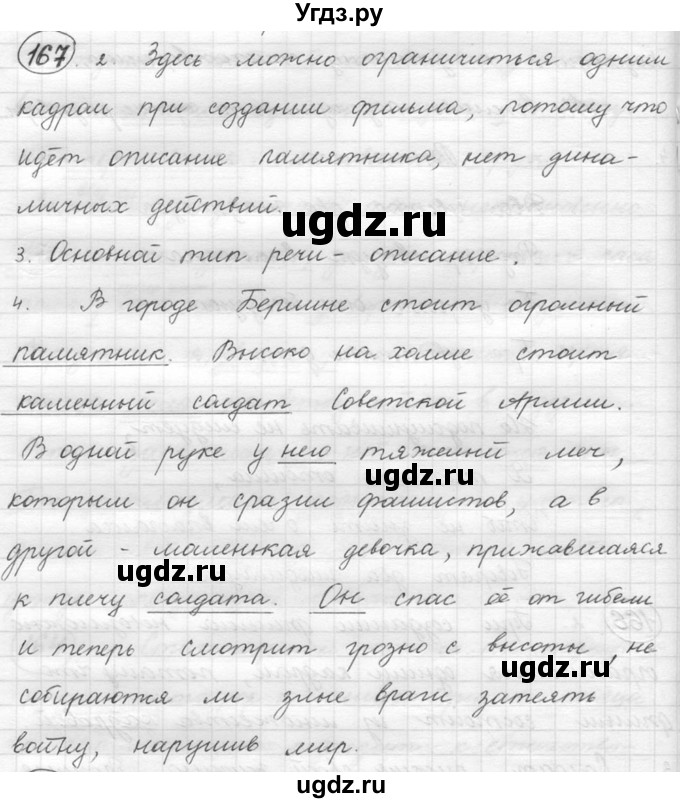 Угдз.ру
167. 2 Здесь можно ограничиться одним
кадром при создании фильма, потому что
идёт описание памятника, нет дина-
мичных действий.
ugdz.ru
3. Основной тип речи - описание.
4. В городе Берлине стоит огромный
памятник. Высоко на холме стоит
каменный солдат Советской Армии.
В одной руке у него тяжелый меч,
ugdz.ru
которым он сразил фашистов, а в
другой - маленькая девочка, прижавшаяся
ugdz.ru
к плечу солдата. Он спас её от гибели
и теперь смотрит грозно с высоты, не
ugdz.ru
собираются ли злые враги затеять
войну, нарушив мир.
ugdz.ru